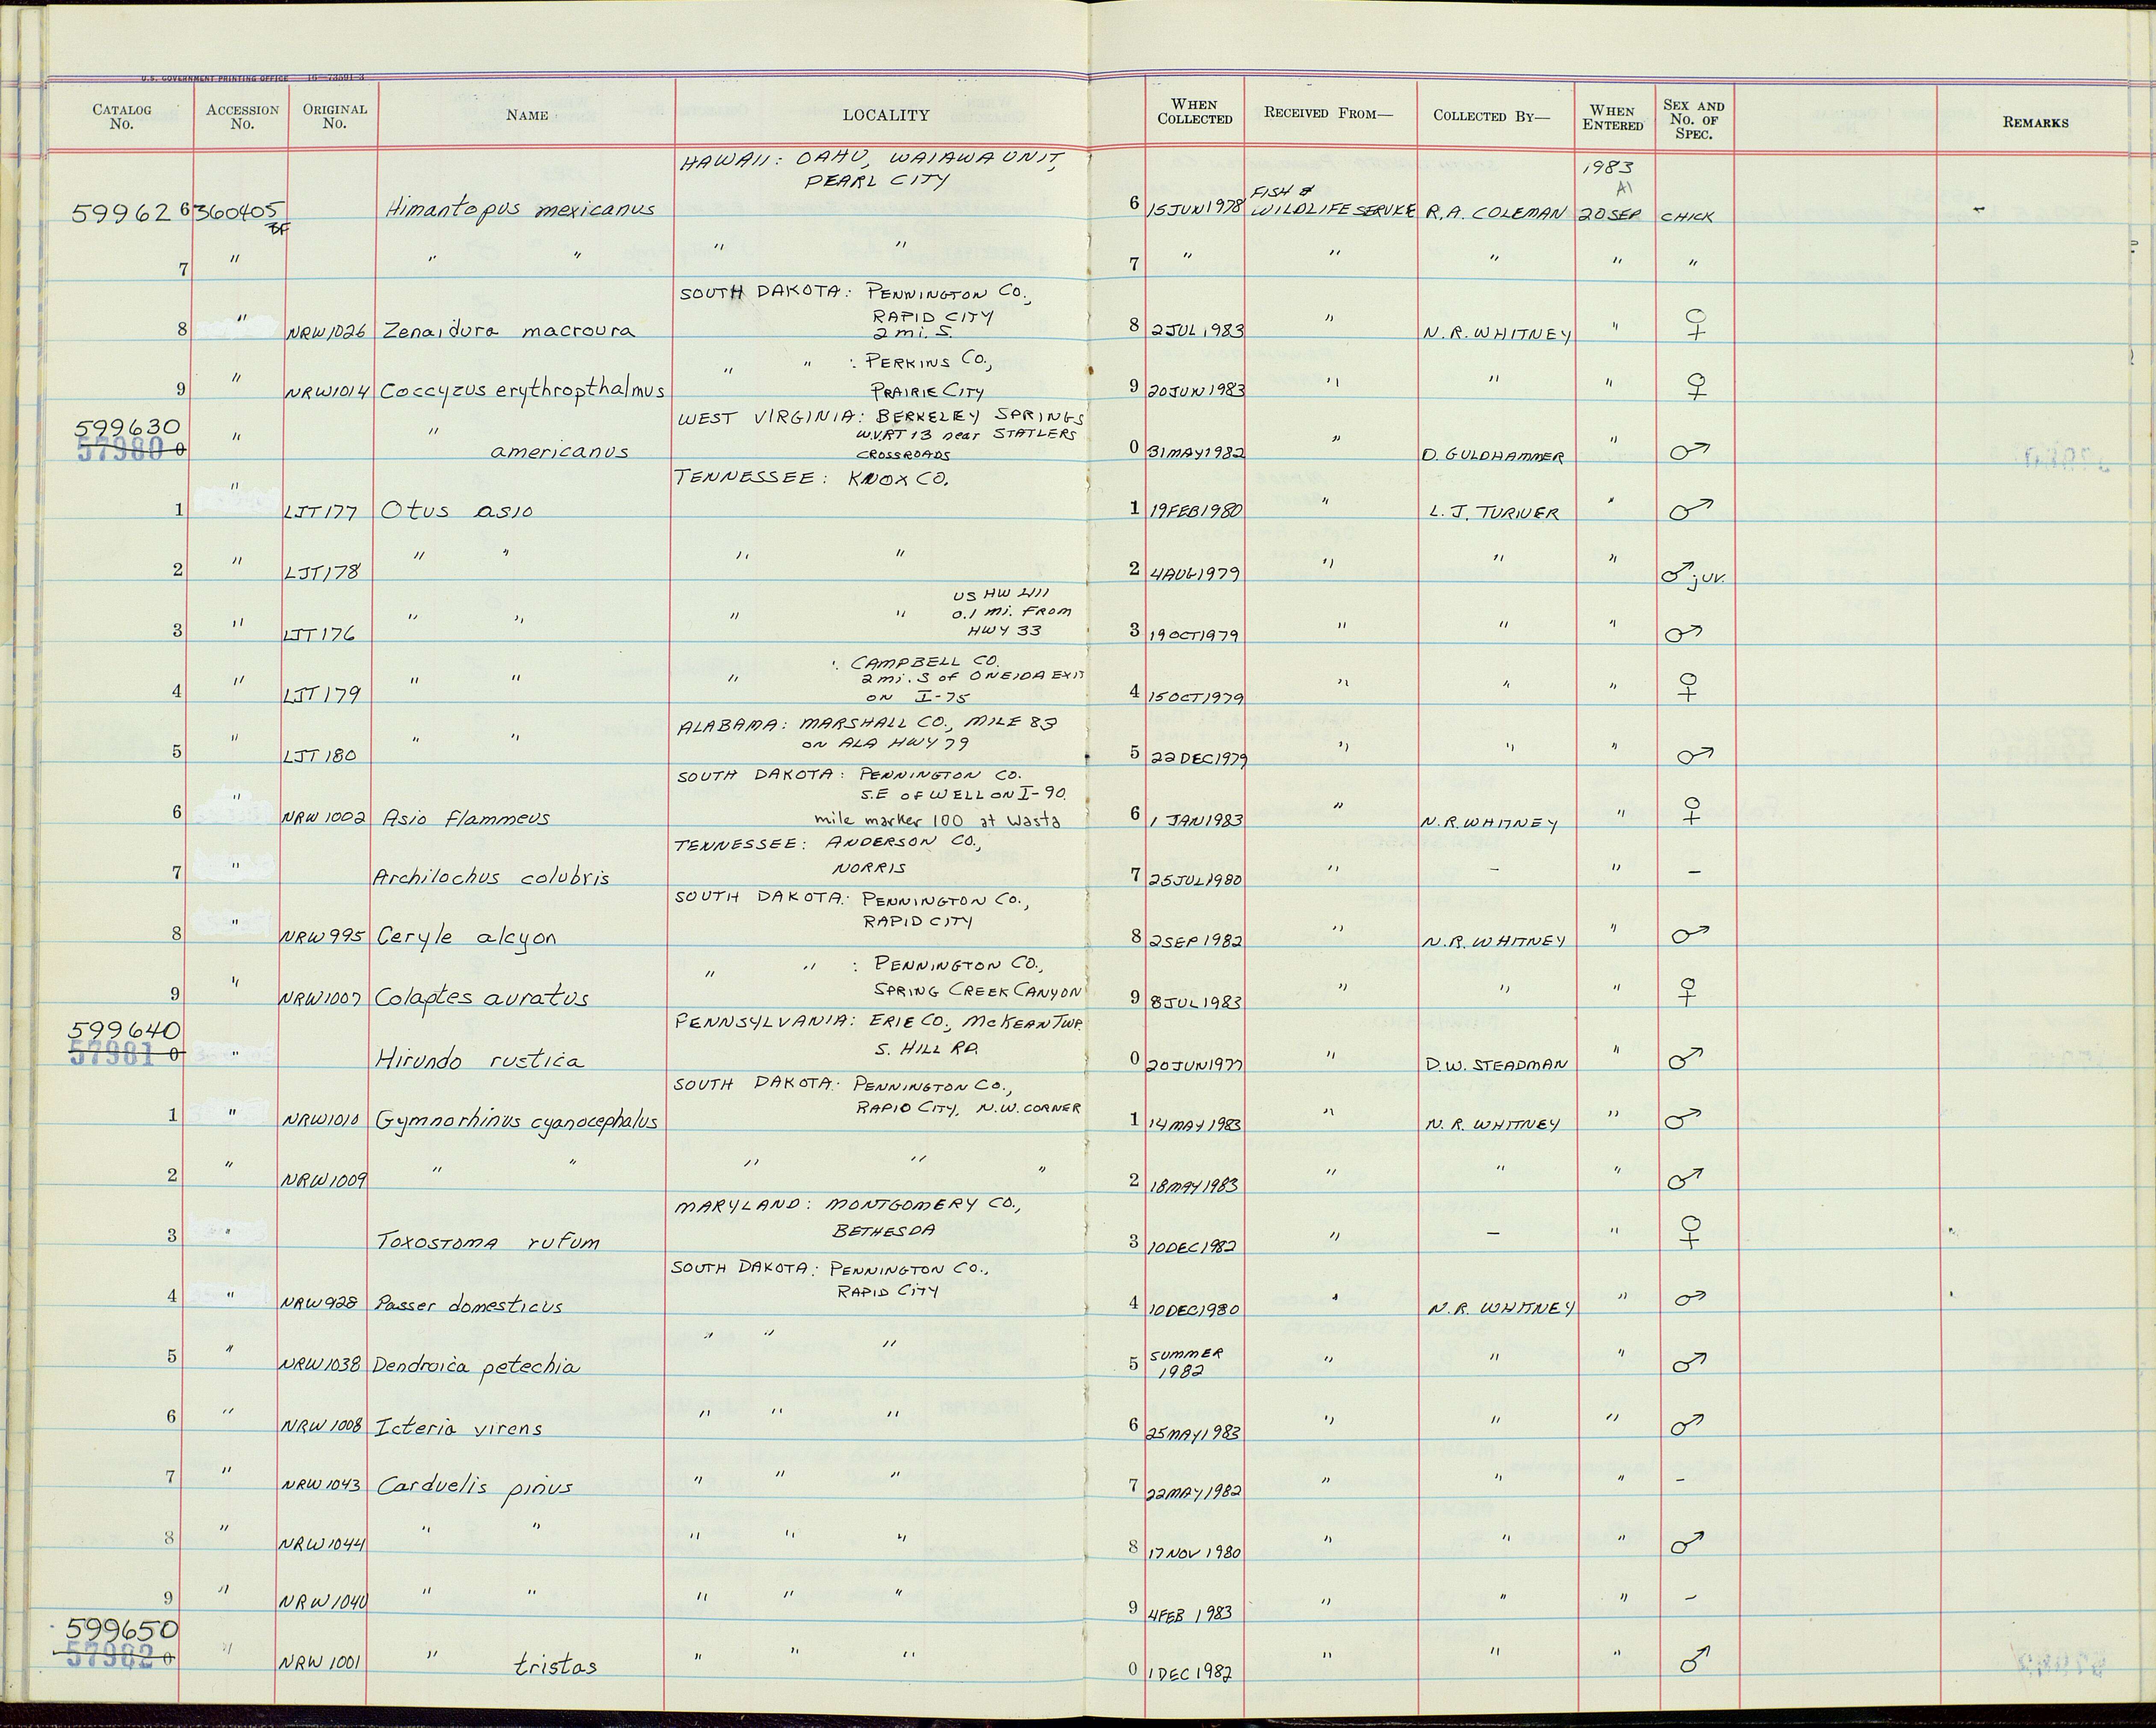 U.S. GOVERNMENT PRINTING OFFICE 16—73591-3
CATALOG No. ACCESSION No. ORIGINAL No. NAME LOCALITY WHEN COLLECTED RECEIVED FROM— COLLECTED BY— WHEN ENTERED SEX AND No. OF SPEC. REMARKS
HAWAII: OAHU, WAIAWA UNIT, 1983
PEARL CITY FISH & A1
599626 360405 Himantopus mexicanus 6 15JUN1978 WILDLIFE SERVICE R.A. COLEMAN 20SEP CHICK
7 " " " " " 7 " " " " "
SOUTH DAKOTA: PENNINGTON CO.,
RAPID CITY
8 " NRW1026 Zenaidura macroura 2 mi. S. 8 2JUL1983 " N.R. WHITNEY " ♀
" " : PERKINS CO.,
9 " NRW1014 Coccyzus erythropthalmus PRAIRIE CITY 9 20JUN1983 " " " ♀
WEST VIRGINIA: BERKELEY SPRINGS
599630 W.V.RT 13 near STATLERS
57980 0 " " americanus CROSSROADS 0 31MAY1982 " D. GULDHAMMER " ♂
TENNESSEE: KNOX CO.
1 " LJT177 Otus asio 1 19FEB1980 " L.J. TURNER " ♂
2 " LJT178 " " " " 2 4AUG1979 " " " ♂ juv.
US HW 411
" " 0.1 mi. FROM
3 " LJT176 " " HWY 33 3 19OCT1979 " " " ♂
: CAMPBELL CO.
" 2mi. S of ONEIDA EXIT
4 " LJT179 " " ON I-75 4 15OCT1979 " " " ♀
ALABAMA: MARSHALL CO., MILE 83
5 " LJT180 " " ON ALA HWY 79 5 22DEC1979 " " " ♂
SOUTH DAKOTA: PENNINGTON CO.
S.E OF WELL ON I-90.
6 " NRW1002 Asio flammeus mile marker 100 at Wasta 6 1 JAN1983 " N.R. WHITNEY " ♀
TENNESSEE: ANDERSON CO.,
7 " Archilochus colubris NORRIS 7 25JUL1980 " – " –
SOUTH DAKOTA: PENNINGTON CO.,
8 " NRW995 Ceryle alcyon RAPID CITY 8 2SEP1982 " N.R. WHITNEY " ♂
" " : PENNINGTON CO.,
9 " NRW1007 Colaptes auratus SPRING CREEK CANYON 9 8JUL1983 " " " ♀
599640 PENNSYLVANIA: ERIE CO., McKEAN TWP.
57981 0 " Hirundo rustica S. HILL RD. 0 20JUN1977 " D.W. STEADMAN " ♂
SOUTH DAKOTA: PENNINGTON CO.,
1 " NRW1010 Gymnorhinus cyanocephalus RAPID CITY, N.W. CORNER 1 14MAY1983 " N.R. WHITNEY " ♂
2 " NRW1009 " " " " " 2 18MAY1983 " " " ♂
MARYLAND: MONTGOMERY CO.,
3 " TOXOSTOMA rufum BETHESDA 3 10DEC1982 " – " ♀
SOUTH DAKOTA: PENNINGTON CO.,
4 " NRW928 Passer domesticus RAPID CITY 4 10DEC1980 " N.R. WHITNEY " ♂
5 " NRW1038 Dendroica petechia " " " 5 SUMMER 1982 " " " ♂
6 " NRW1008 Icteria virens " " " 6 25MAY1983 " " " ♂
7 " NRW1043 Carduelis pinus " " " 7 22MAY1982 " " " –
8 " NRW1044 " " " " " 8 17NOV1980 " " " ♂
9 " NRW1040 " " " " " 9 4FEB 1983 " " " –
599650
57982 0 " NRW1001 " tristas " " " 0 1DEC1982 " " " ♂